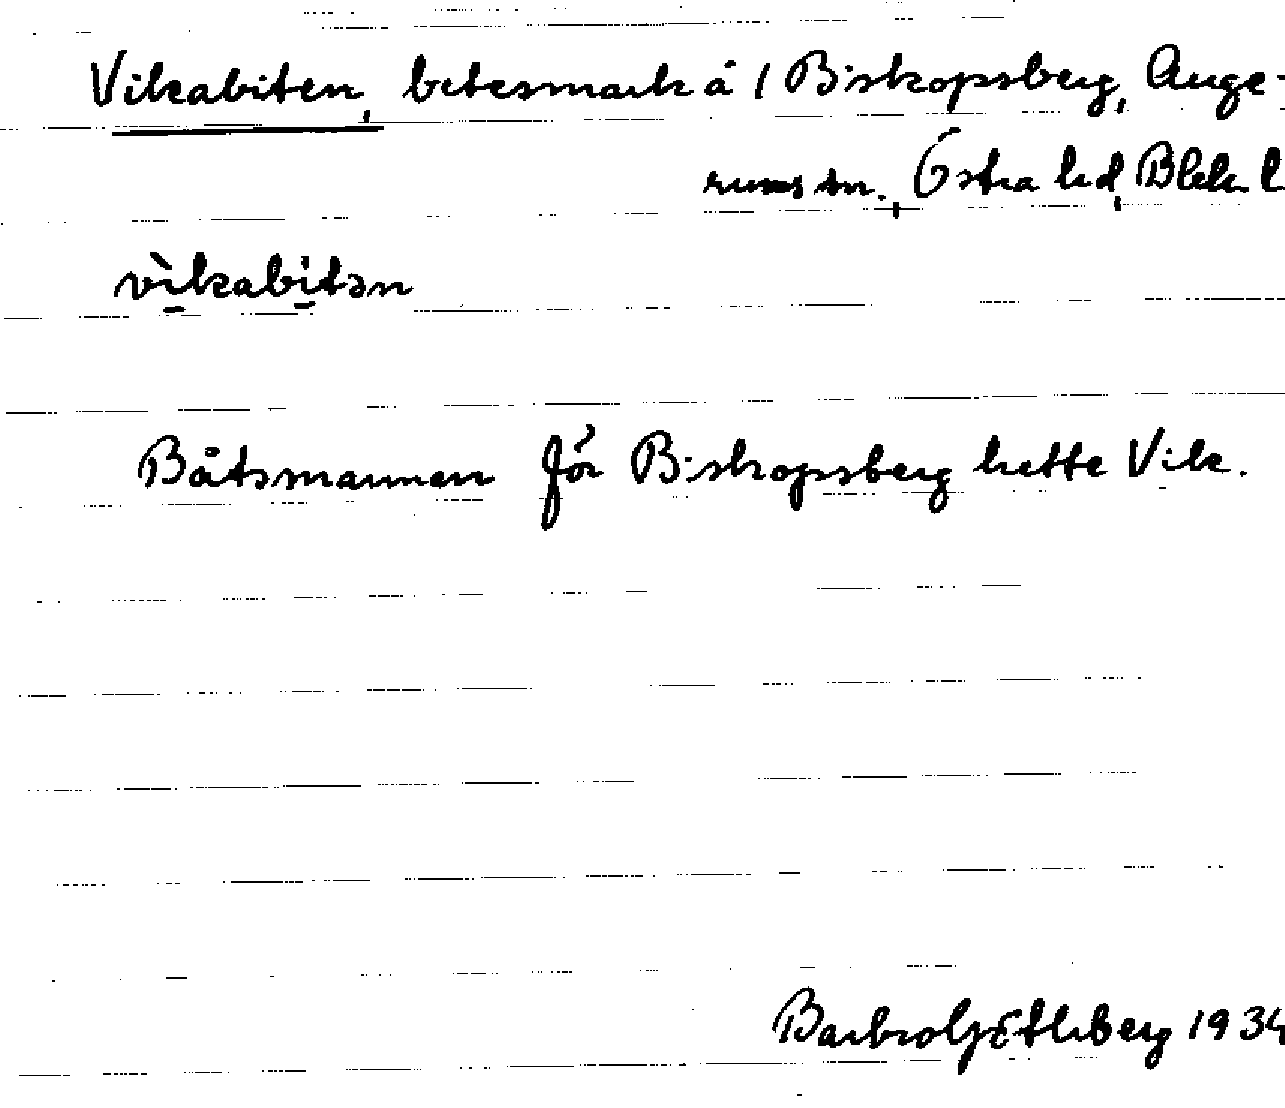 Vikabiten, betesmark å 1 Biskopsberg, Auge-
rums sn., Östra hd, Blek. l
vìkabitən
Båtsmannen för Biskopsberg hette Vik.
Barbro Götlberg 1934